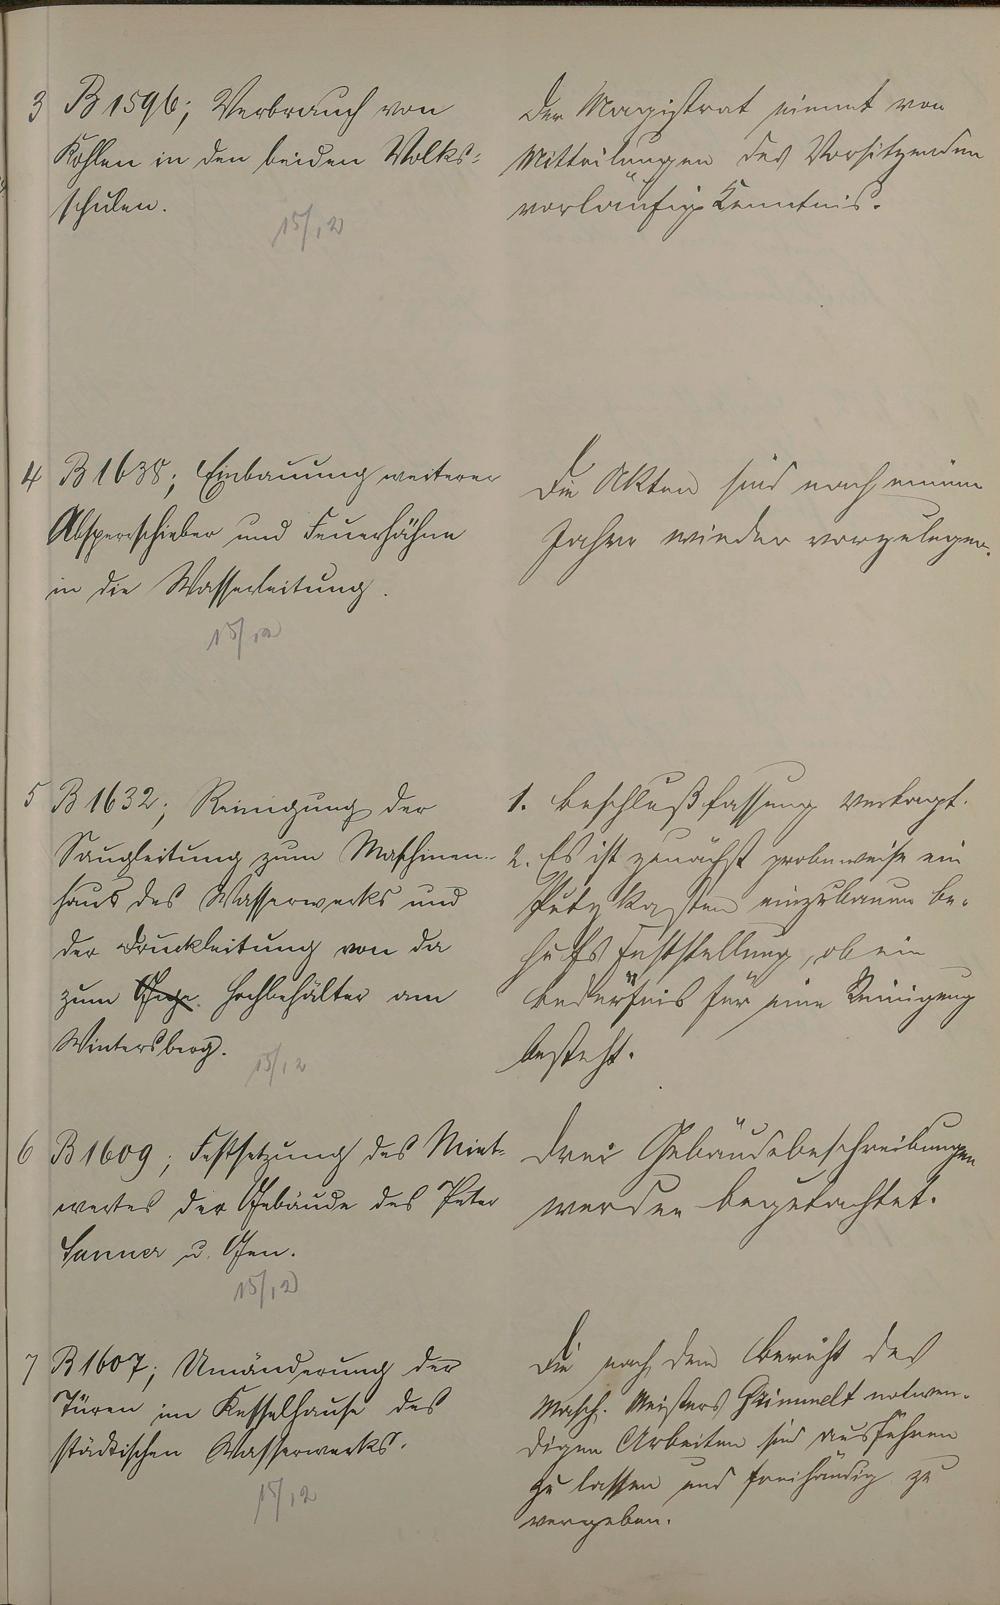 3 B 1596; Verbrauch von
Kohlen in den beiden Volks=
schulen.
15/12
Der Magistrat nimmt von
Mitteilungen des Vorsitzenden
vorläufig Kenntnis.
4 B 1638; Einbauung weiterer
Absperrschieber und Feuerhähne
in die Wasserleitung.
15/12
Die Akten sind nach einem
Jahre wieder vorzulegen.
5 B 1632; Reinigung der
Saugleitung zum Maschinen-
haus des Wasserwerks und
der Druckleitung von da
zum Hochbehälter am
Wintersberg.
15/12
1. Beschlußfassung vertagt.
2. Es ist zunächst probeweise ein
Putzkasten einzubauen be-
hufs Feststellung, ob ein
Bedürfnis für eine Reinigung
besteht.
6 B 1609; Festsetzung des Miet-
wertes der Gebäude des Peter
Sanner u. Gen.
15/12
Drei Gebäudebeschreibungen
werden begutachtet.
7 B 1607; Umänderung der
Türen im Kesselhause des
städtischen Wasserwerks.
15/12
Die nach dem Bericht des
Masch. Meisters Grimmelt notwen-
digen Arbeiten sind ausführen
zu lassen und freihändig zu
vergeben.